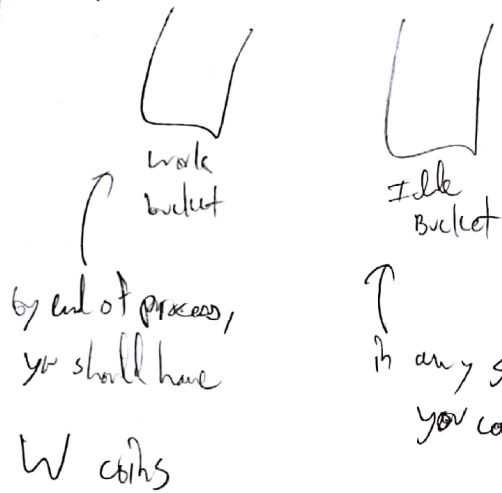 work
bucket
Idle
Bucket
by end of process,
you should have
W coins
in any
you